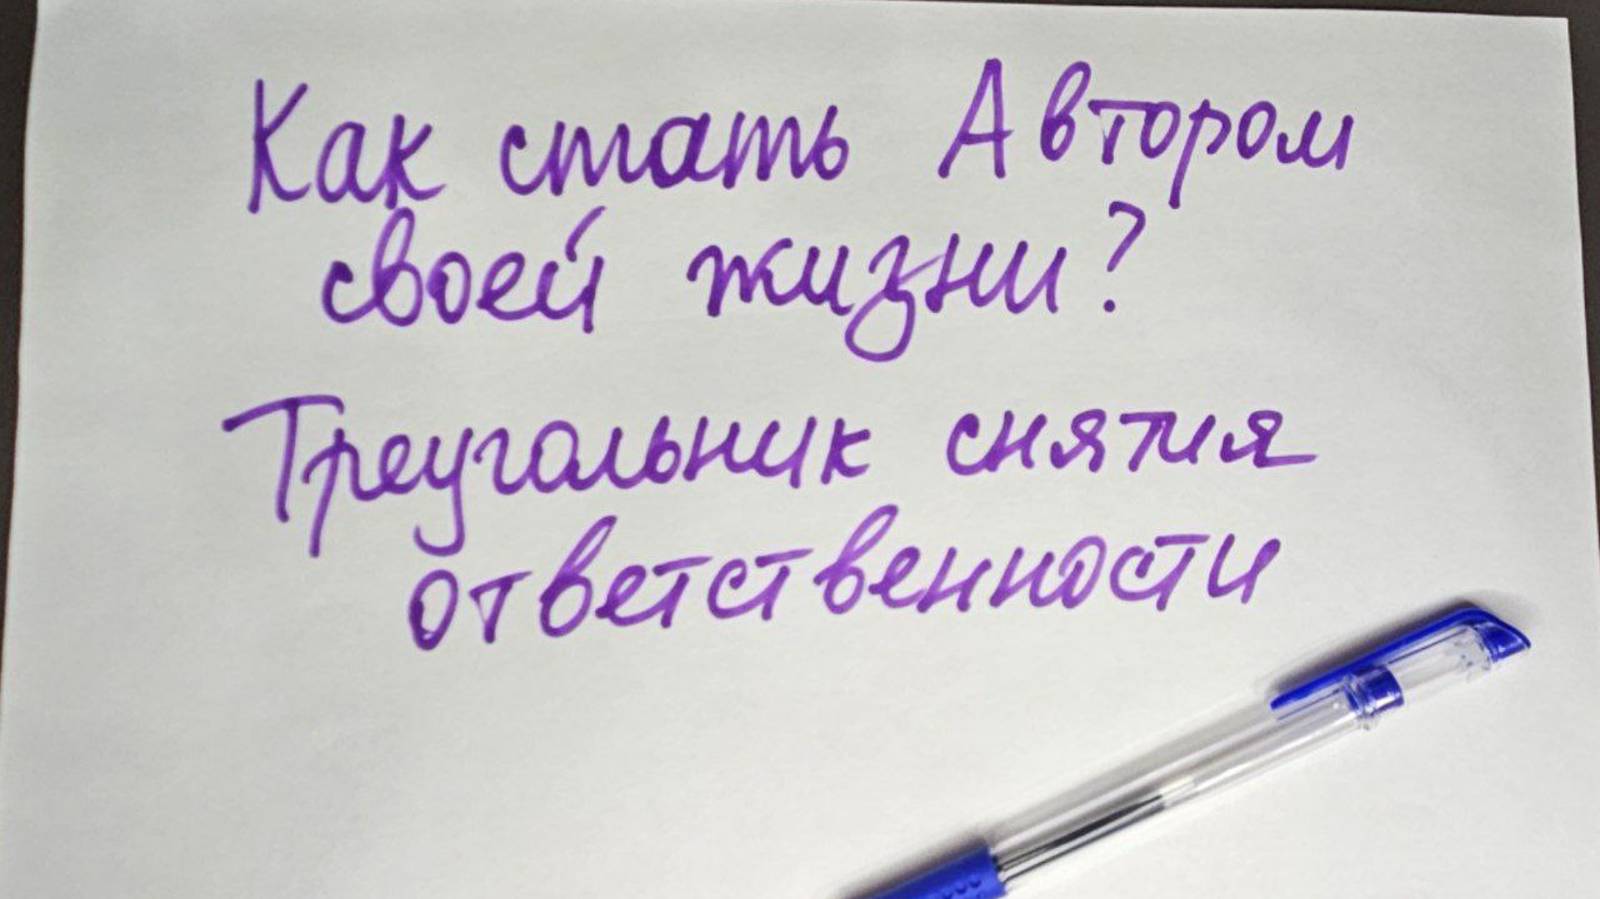 Как стать Автором
своей жизни?
Треугольник снятия
ответственности